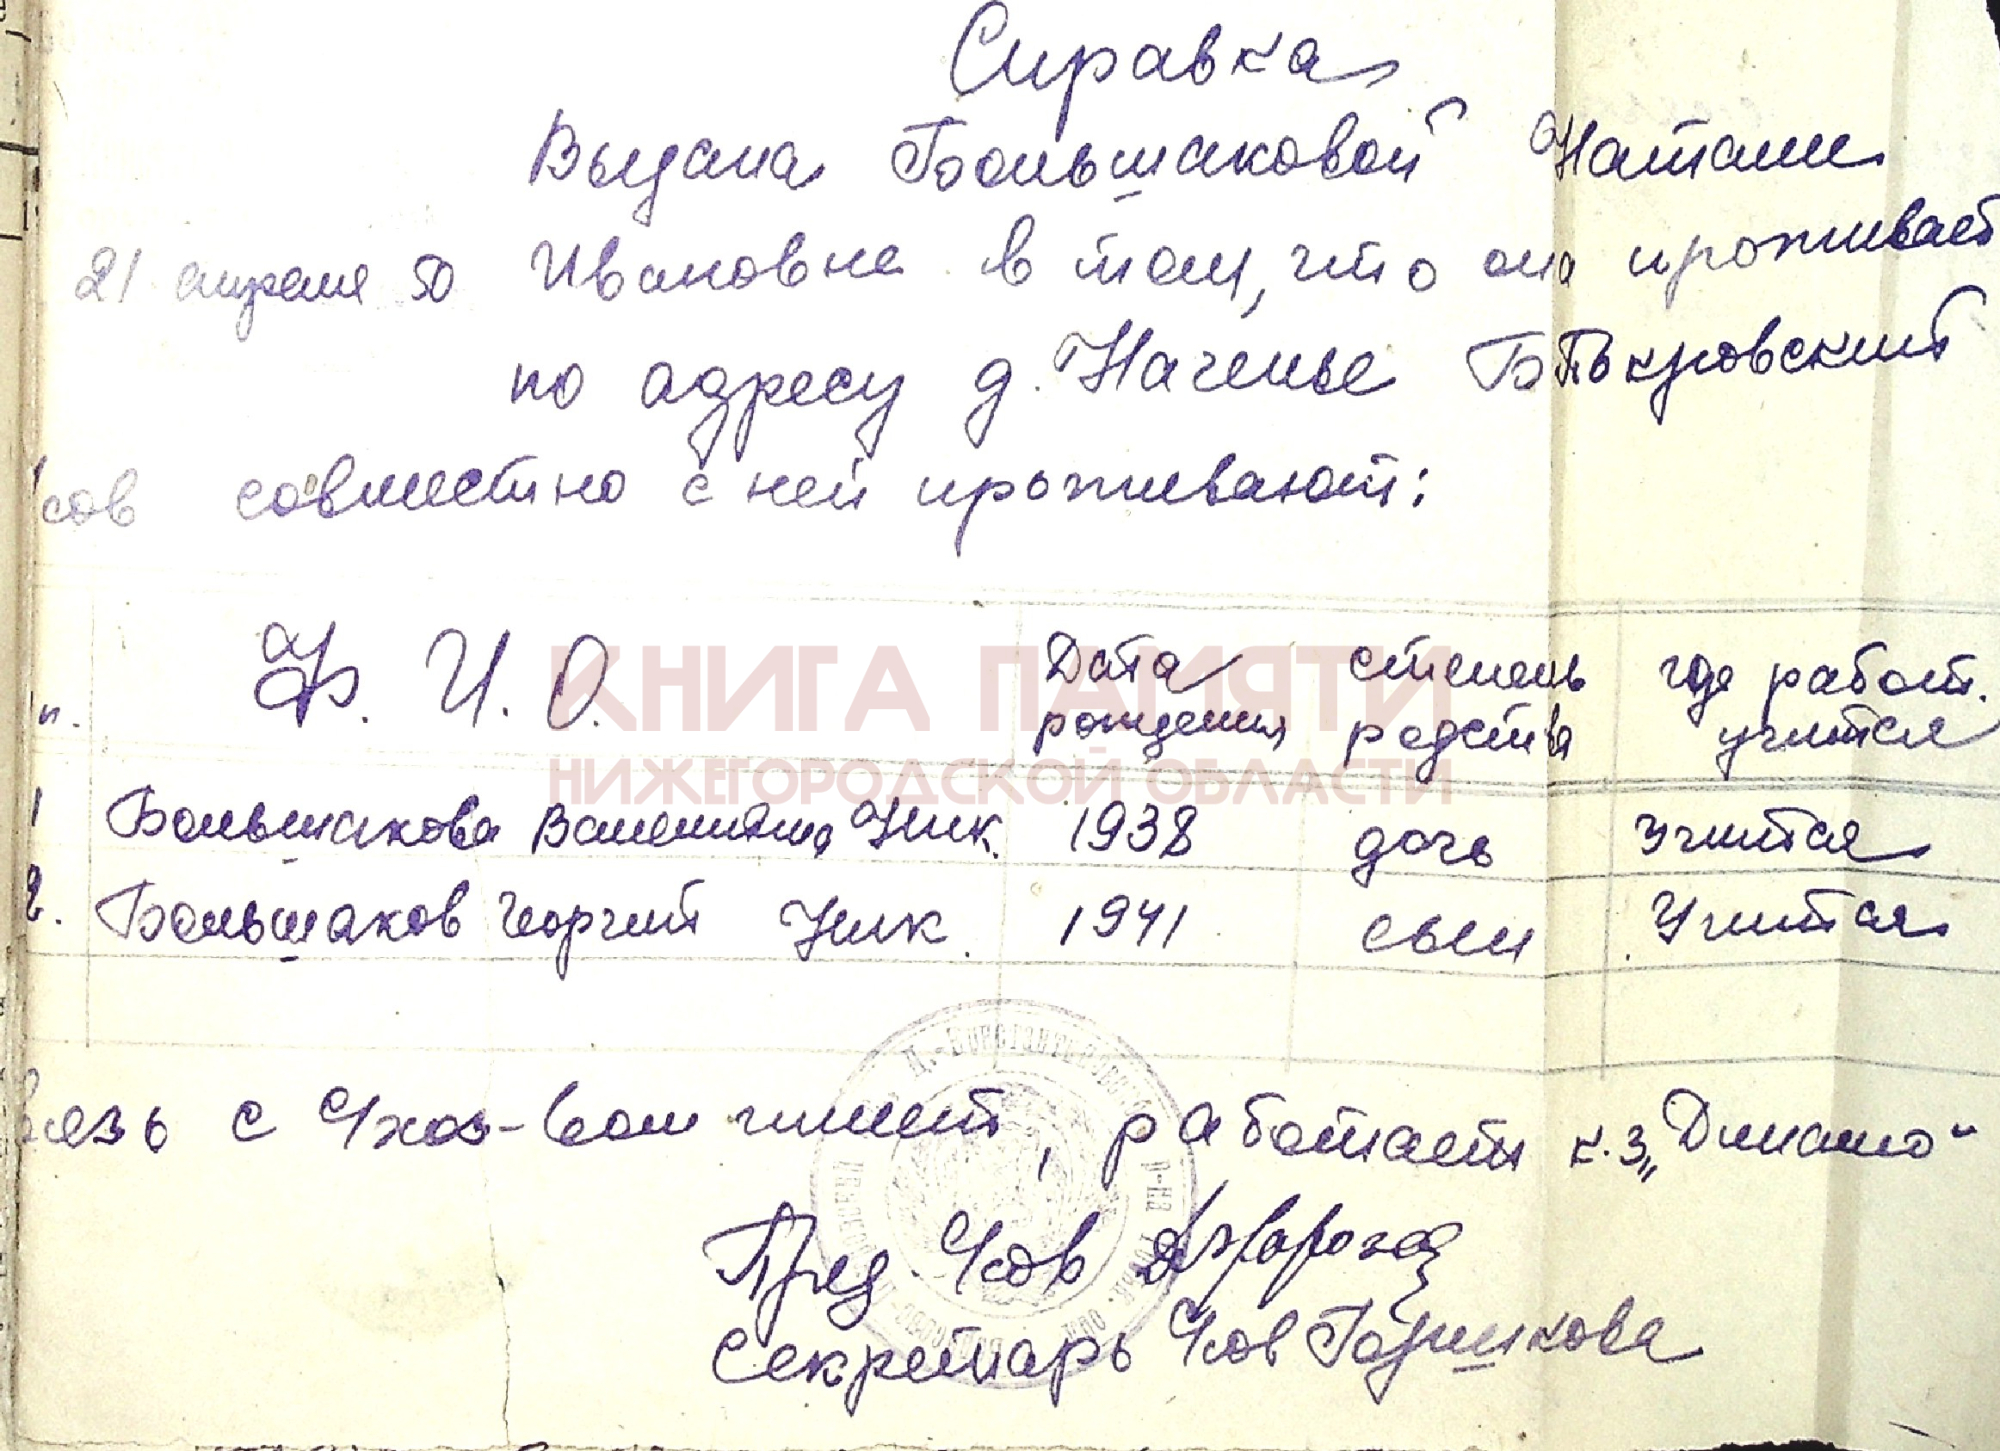 Справка
Выдана Большаковой Наталии
21 апреля 50 Ивановне в том, что она проживает
по адресу д. Наченье Б Покровский
сов совместно с ней проживают:
п. Ф. И. О. Дата рождения степень родства где работ. учится
КНИГА ПАМЯТИ
НИЖЕГОРОДСКОЙ ОБЛАСТИ
1 Большакова Валентина Ник. 1938 дочь Учится
2. Большаков Георгий Ник. 1941 сын Учится
вязь с С/хоз-вом имеет, работает к-з „Динамо"
Пред. С/сов
Секретарь С/сов Горшкова